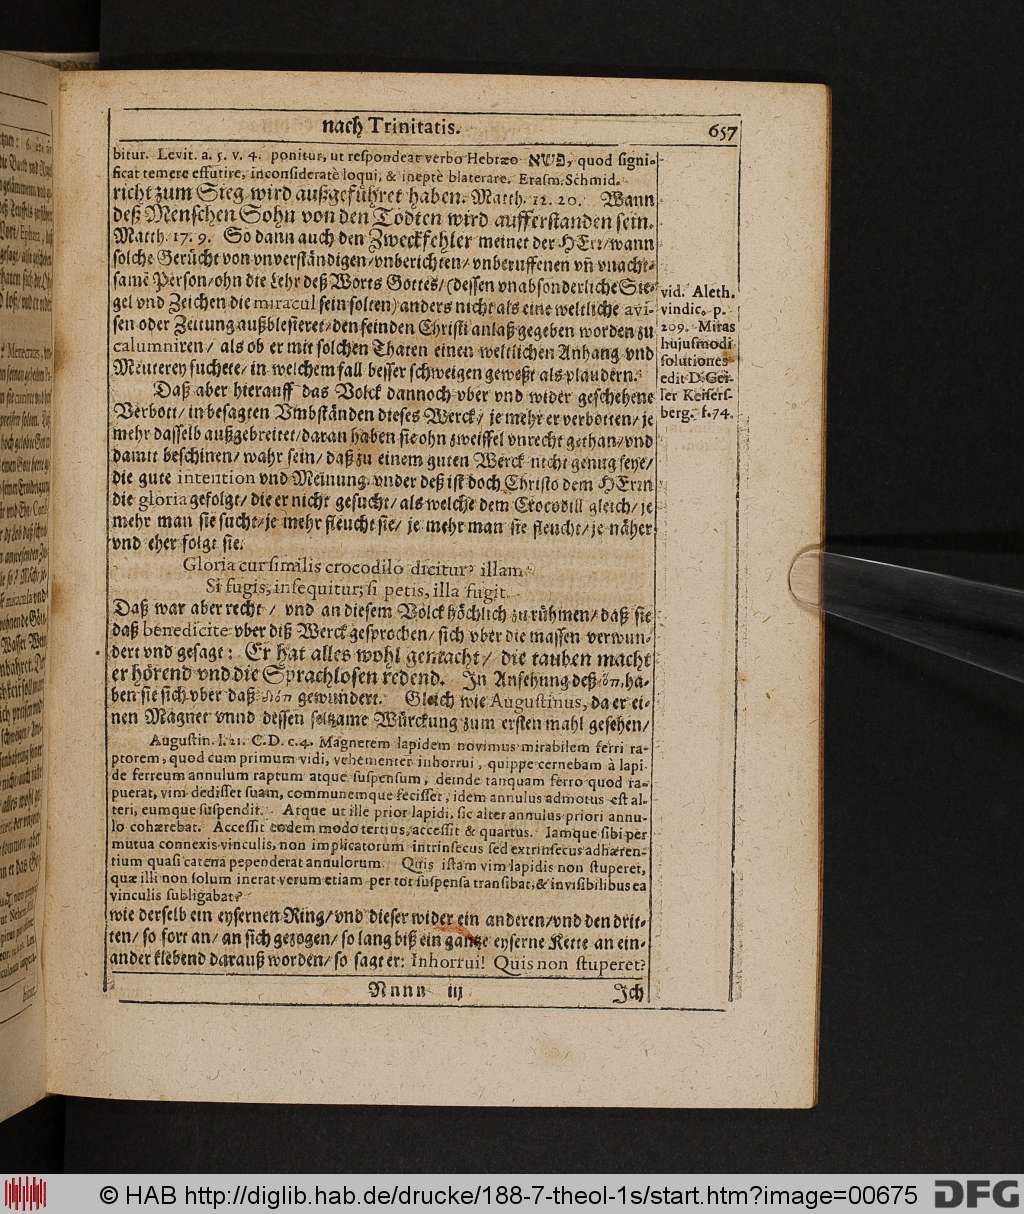 nach Trinitatis. 657
bitur. Levit. a. 5. v. 4. ponitur, ut respondeat verbo Hebræo פשא, quod signi-
ficat temere effutire, inconsideratè loqui, & ineptè blaterare. Erasm. Schmid.
richt zum Sieg wird außgeführet haben. Matth. 12. 20. Wann
deß Menschen Sohn von den Todten wird aufferstanden sein.
Matth. 17. 9. So dann auch den Zweckfehler meinet der HErr/ wann
solche Gerücht von vnverständigen/ vnberichten/ vnberuffenen vñ vnacht-
samẽ Person/ ohn die Lehr deß Worts Gottes/ (dessen vnabsonderliche Sie-
gel vnd Zeichen die miracul sein solten) anders nicht als eine weltliche avi-
sen oder Zeitung außblesieret/ den feinden Christi anlaß gegeben worden zu
calumniren/ als ob er mit solchen Thaten einen weltlichen Anhang vnd
Meuterey suchete/ in welchem fall besser schweigen geweßt als plaudern.
vid. Aleth.
vindic. p.
209. Miras
hujusmodi
solutiones
edit D. Geis-
ler Keisers-
berg. f. 74.
Daß aber hierauff das Volck dannoch vber vnd wider geschehene
Verbott/ in besagten Vmbständen dieses Werck/ je mehr er verbotten/ je
mehr dasselb außgebreitet/ daran haben sie ohn zweiffel vnrecht gethan/ vnd
damit beschinen/ wahr sein/ daß zu einem guten Werck nicht genug seye/
die gute intention vnd Meinung. vnder deß ist doch Christo dem HErrn
die gloria gefolgt/ die er nicht gesucht/ als welche dem Crocodill gleich/ je
mehr man sie sucht/ je mehr fleucht sie/ je mehr man sie fleucht/ je näher
vnd eher folgt sie.
Gloria cur similis crocodilo dicitur? illam
Si fugis, insequitur; si petis, illa fugit.
Daß war aber recht/ vnd an diesem Volck höchlich zu rühmen/ daß sie
daß benedicite vber diß Werck gesprochen/ sich vber die massen verwun-
dert vnd gesagt: Er hat alles wohl gemacht/ die tauben macht
er hörend vnd die Sprachlosen redend. In Ansehung deß ha-
ben sie sich vber daß gewundert. Gleich wie Augustinus, da er ei-
nen Magnet vnnd dessen seltzame Würckung zum ersten mahl gesehen/
Augustin. l. 21. C. D. c. 4. Magnetem lapidem novimus mirabilem ferri ra-
ptorem, quod cum primum vidi, vehementer inhorrui, quippe cernebam à lapi-
de ferreum annulum raptum atque suspensum, deinde tanquam ferro quod ra-
puerat, vim dedisset suam, communemque fecisset, idem annulus admotus est al-
teri, eumque suspendit. Atque ut ille prior lapidi, sic alter annulus priori annu-
lo cohærebat. Accessit eodem modo tertius, accessit & quartus. Jamque sibi per
mutua connexis vinculis, non implicatorum intrinsecus sed extrinsecus adhæren-
tium quasi catena pependerat annulorum. Quis istam vim lapidis non stuperet,
quæ illi non solum inerat verum etiam per tot suspensa transibat, & invisibilibus ea
vinculis subligabat?
wie derselb ein eysernen Ring/ vnd dieser wider ein anderen/ vnd den drit-
ten/ so fort an/ an sich gezogen/ so lang biß ein gantze eyserne Kette an ein-
ander klebend darauß worden/ so sagt er: Inhorrui! Quis non stuperet?
Nnnn iij Ich
© HAB http://diglib.hab.de/drucke/188-7-theol-1s/start.htm?image=00675 DFG